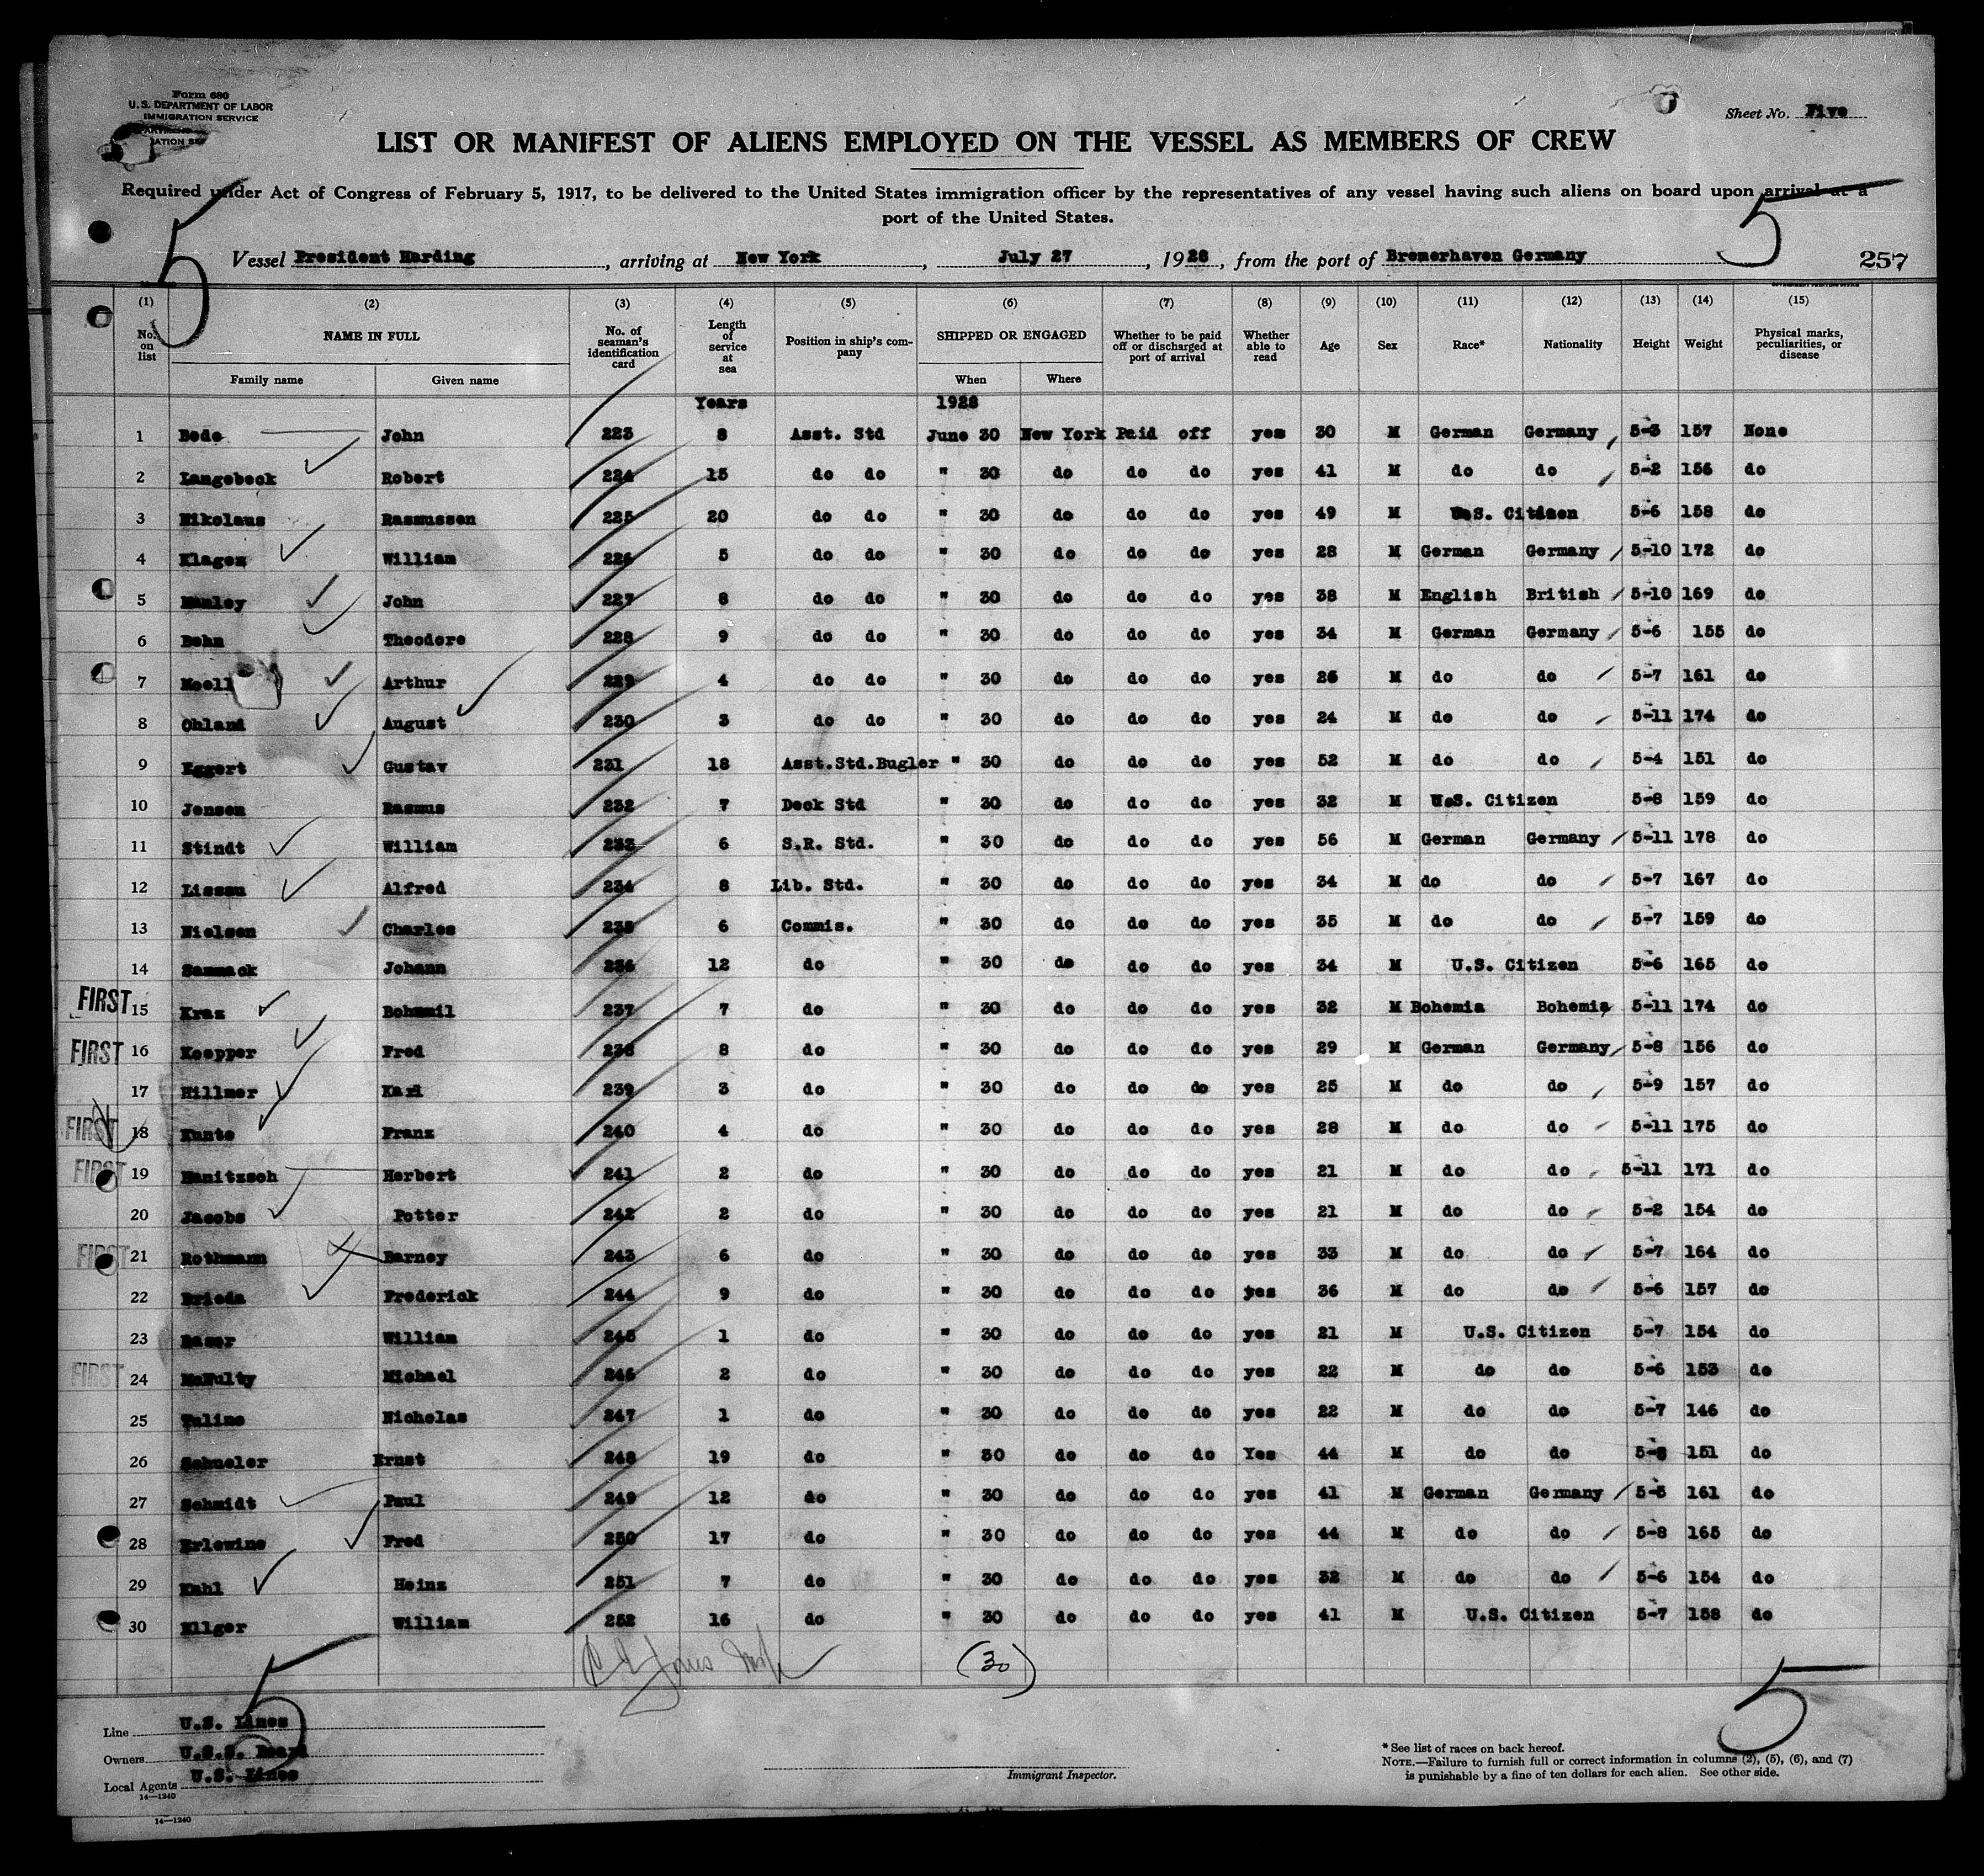 Form 680
U. S. DEPARTMENT OF LABOR
IMMIGRATION SERVICE
Sheet No. Five
LIST OR MANIFEST OF ALIENS EMPLOYED ON THE VESSEL AS MEMBERS OF CREW
Required under Act of Congress of February 5, 1917, to be delivered to the United States immigration officer by the representatives of any vessel having such aliens on board upon arrival at a
port of the United States.
5 5
Vessel President Harding, arriving at New York, July 27, 1928, from the port of Bremerhaven Germany 257
(1) (2) (3) (4) (5) (6) (7) (8) (9) (10) (11) (12) (13) (14) (15)
No. on list NAME IN FULL Family name Given name No. of seaman's identification card Length of service at sea Position in ship's company SHIPPED OR ENGAGED When Where Whether to be paid off or discharged at port of arrival Whether able to read Age Sex Race* Nationality Height Weight Physical marks, peculiarities, or disease
Years 1928
1 Bode John 223 8 Asst. Std June 30 New York Paid off yes 30 M German Germany 5-3 157 None
2 Langebeck Robert 224 15 do do " 30 do do do yes 41 M do do 5-2 156 do
3 Nikolaus Rasmussen 225 20 do do " 30 do do do yes 49 M U.S. Citizen 5-6 158 do
4 Klages William 226 5 do do " 30 do do do yes 28 M German Germany 5-10 172 do
5 Manley John 227 8 do do " 30 do do do yes 38 M English British 5-10 169 do
6 Behn Theodore 228 9 do do " 30 do do do yes 34 M German Germany 5-6 155 do
7 Moell Arthur 229 4 do do " 30 do do do yes 26 M do do 5-7 161 do
8 Ohland August 230 3 do do " 30 do do do yes 24 M do do 5-11 174 do
9 Eggert Gustav 231 18 Asst.Std.Bugler " 30 do do do yes 52 M do do 5-4 151 do
10 Jensen Rasmus 232 7 Deck Std " 30 do do do yes 32 M U.S. Citizen 5-8 159 do
11 Stindt William 233 6 S.R. Std. " 30 do do do yes 56 M German Germany 5-11 178 do
12 Lissau Alfred 234 8 Lib. Std. " 30 do do do yes 34 M do do 5-7 167 do
13 Nielsen Charles 235 6 Commis. " 30 do do do yes 35 M do do 5-7 159 do
14 Sammack Johann 236 12 do " 30 do do do yes 34 M U.S. Citizen 5-6 165 do
FIRST 15 Kraz Bohumil 237 7 do " 30 do do do yes 32 M Bohemia Bohemia 5-11 174 do
FIRST 16 Koepper Fred 238 8 do " 30 do do do yes 29 M German Germany 5-8 156 do
17 Hillmer Karl 239 3 do " 30 do do do yes 25 M do do 5-9 157 do
FIRST 18 Kunte Franz 240 4 do " 30 do do do yes 28 M do do 5-11 175 do
FIRST 19 Hanitzsch Herbert 241 2 do " 30 do do do yes 21 M do do 5-11 171 do
20 Jacobs Potter 242 2 do " 30 do do do yes 21 M do do 5-2 154 do
FIRST 21 Rothmann Barney 243 6 do " 30 do do do yes 33 M do do 5-7 164 do
22 Brieda Frederick 244 9 do " 30 do do do yes 36 M do do 5-6 157 do
23 William 245 1 do " 30 do do do yes 21 M U.S. Citizen 5-7 154 do
FIRST 24 McNulty Michael 246 2 do " 30 do do do yes 22 M do do 5-6 153 do
25 Tuline Nicholas 247 1 do " 30 do do do yes 22 M do do 5-7 146 do
26 Schueler Ernst 248 19 do " 30 do do do Yes 44 M do do 5-8 151 do
27 Schmidt Paul 249 12 do " 30 do do do yes 41 M German Germany 5-5 161 do
28 Erlewine Fred 250 17 do " 30 do do do yes 44 M do do 5-8 165 do
29 Kahl Heinz 251 7 do " 30 do do do yes 32 M do do 5-6 154 do
30 Ellger William 252 16 do " 30 do do do yes 41 M U.S. Citizen 5-7 158 do
(30)
5 5
Line U.S. Lines
Owners U.S.S. Board
Local Agents U.S. Lines
14—1240
Immigrant Inspector.
* See list of races on back hereof.
NOTE.—Failure to furnish full or correct information in columns (2), (5), (6), and (7)
is punishable by a fine of ten dollars for each alien. See other side.
14—1240